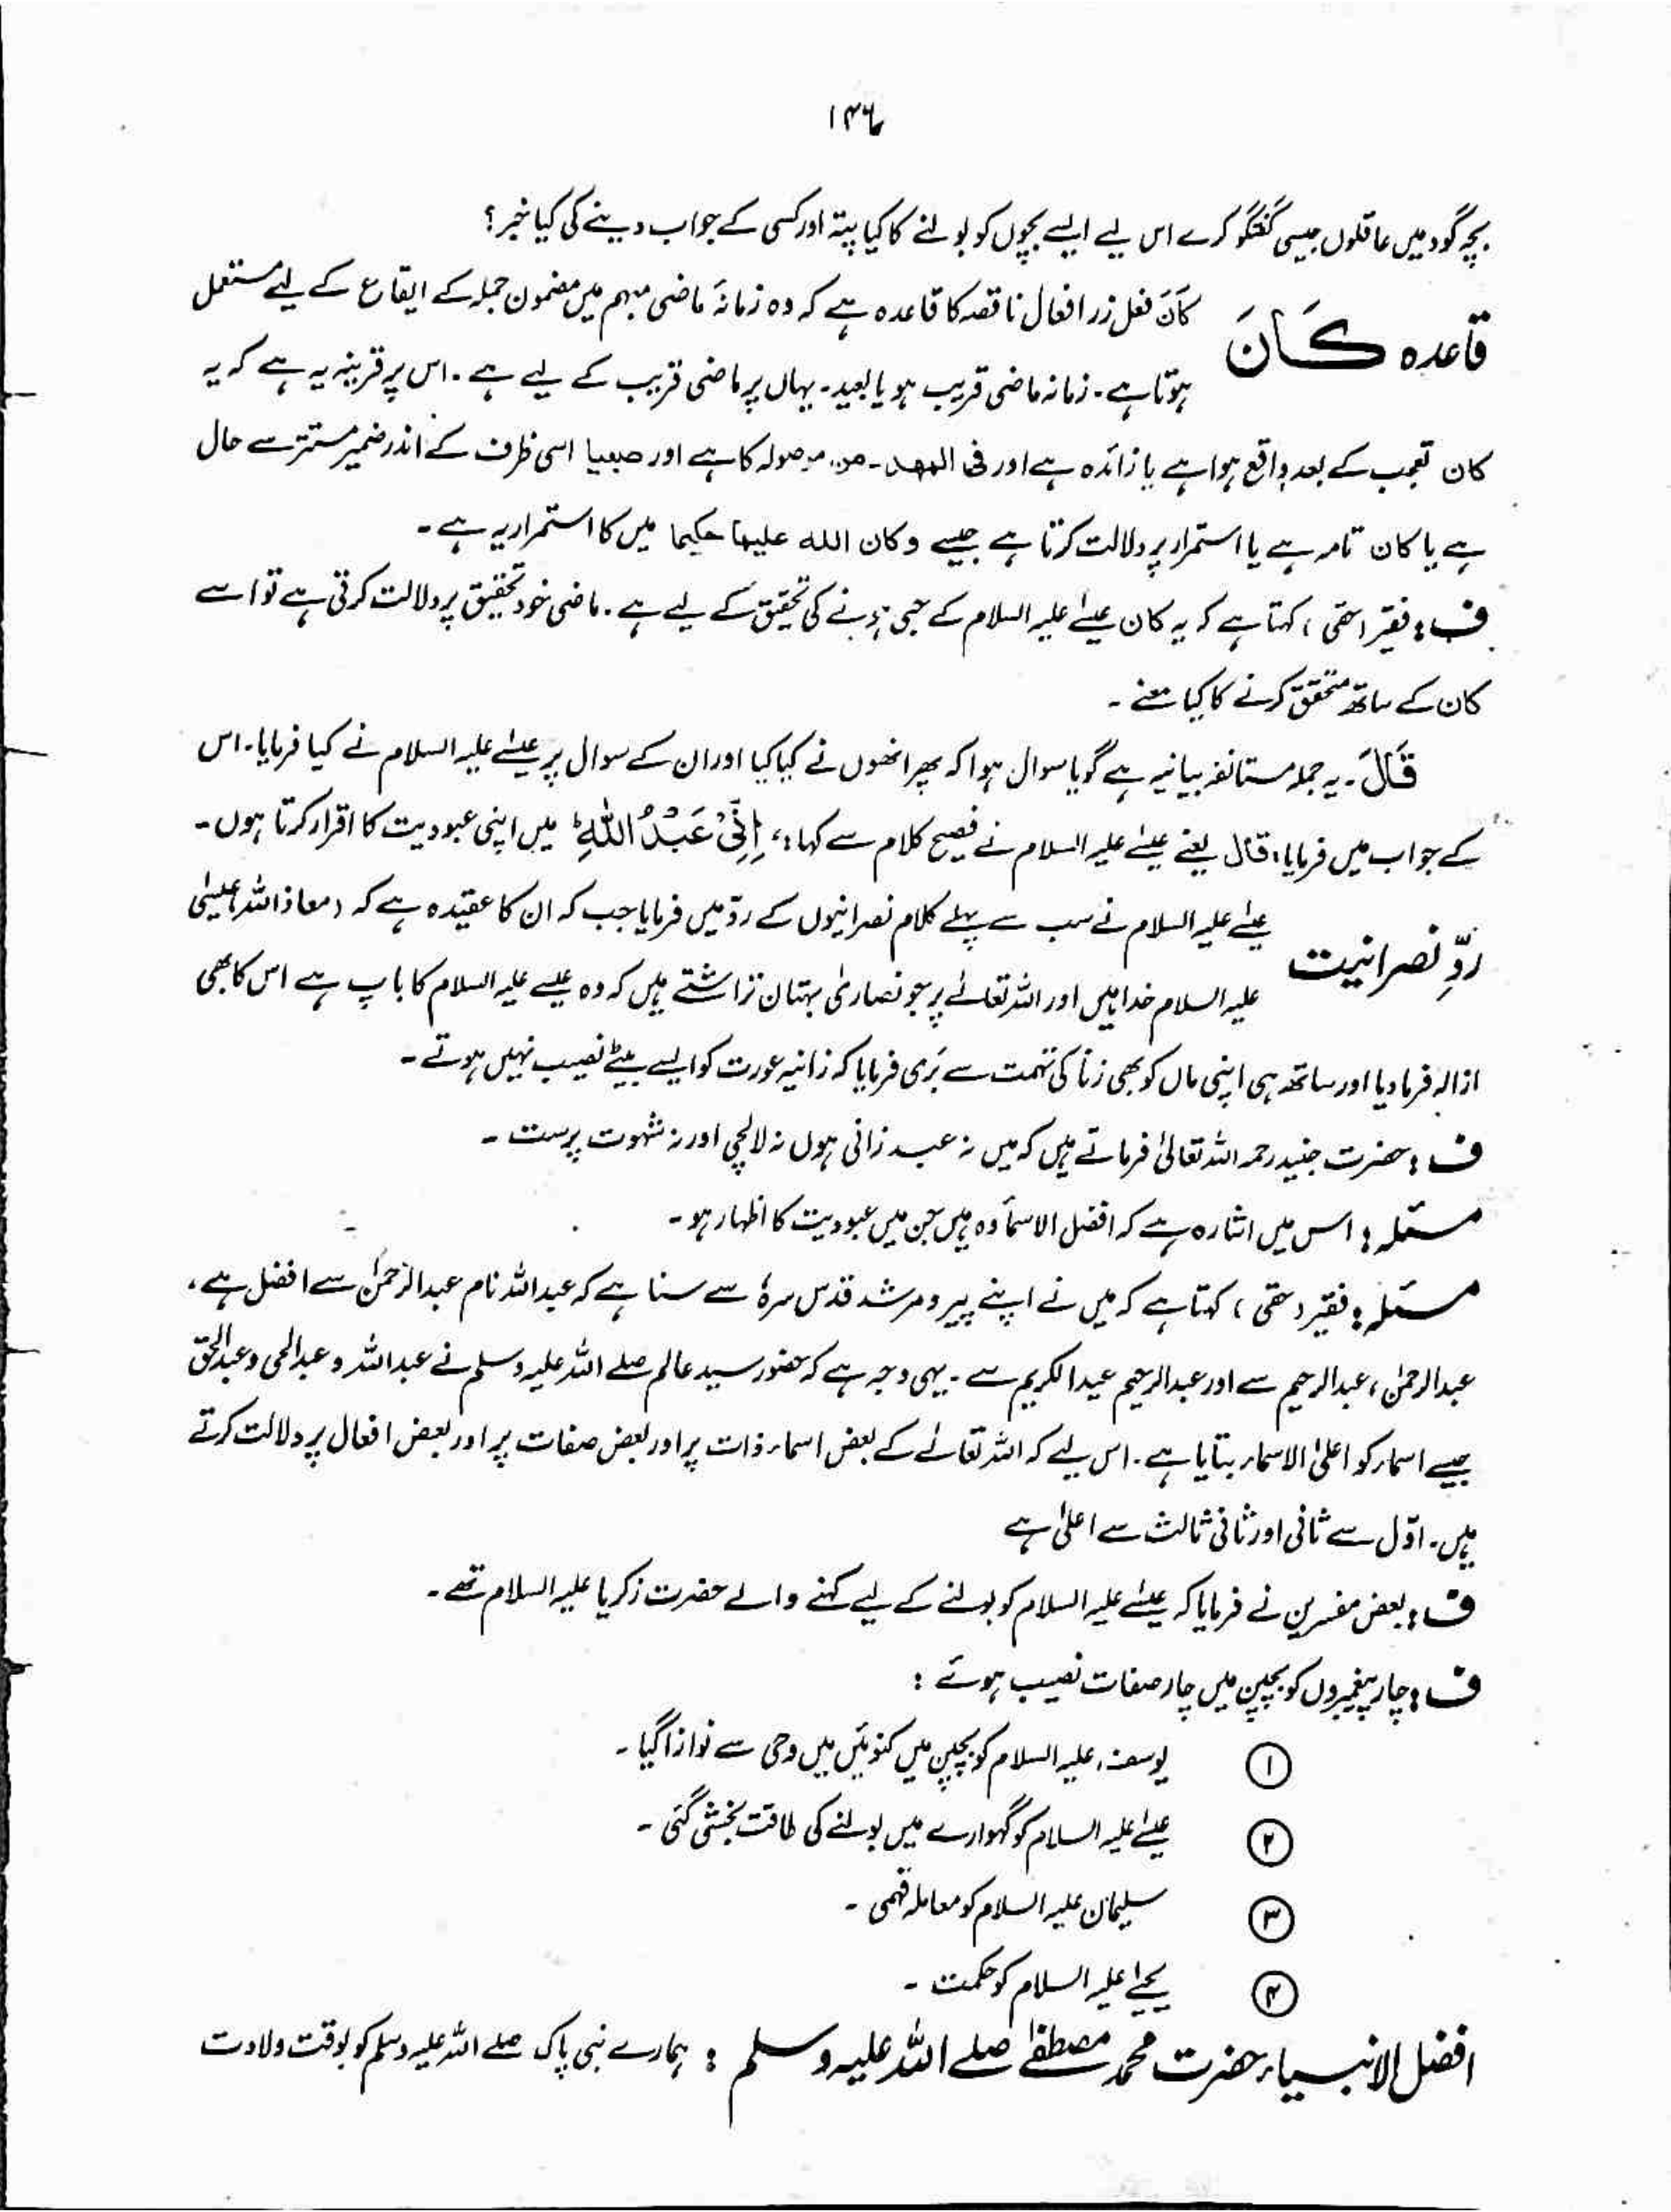 ۱۴۶
بچہ گود میں عاقلوں جیسی گفتگو کرے اس لیے ایسے بچوں کو بولنے کا کیا پتہ اور کسی کے جواب دینے کی کیا خبر؟
قاعدہ كَانَ
كَانَ فعل زر افعال ناقصہ کا قاعدہ ہے کہ وہ زمانۂ ماضی مبہم میں مضمون جملہ کے ایقاع کے لیے مستعمل
ہوتا ہے۔ زمانہ ماضی قریب ہو یا بعید۔ یہاں پر ماضی قریب کے لیے ہے۔ اس پر قرینہ یہ ہے کہ یہ
کان تعجب کے بعد واقع ہوا ہے یا زائدہ ہے اور فی المهد۔ من، موصولہ کا ہے اور صبیا اسی ظرف کے اندر ضمیر مستتر سے حال
ہے یا کان تامہ ہے یا استمرار پر دلالت کرتا ہے جیسے وکان الله علیما حکیما میں کا استمراریہ ہے۔
ف: فقیر (حقی) کہتا ہے کہ یہ کان عیسےٰ علیہ السلام کے صبی ہونے کی تحقیق کے لیے ہے۔ ماضی خود تحقیق پر دلالت کرتی ہے تو اسے
کان کے ساتھ متحقق کرنے کا کیا معنے۔
قَالَ۔ یہ جملہ مستانفہ بیانیہ ہے گویا سوال ہوا کہ پھر انھوں نے کیا کیا اور ان کے سوال پر عیسےٰ علیہ السلام نے کیا فرمایا۔ اس
کے جواب میں فرمایا، قال یعنے عیسےٰ علیہ السلام نے فصیح کلام سے کہا: اِنِّیْ عَبْدُ اللّٰهِ میں اپنی عبودیت کا اقرار کرتا ہوں۔
ردِّ نصرانیت
عیسےٰ علیہ السلام نے سب سے پہلے کلام نصرانیوں کے ردّ میں فرمایا جب کہ ان کا عقیدہ ہے کہ (معاذ اللہ) عیسیٰ
علیہ السلام خدا ہیں اور اللہ تعالےٰ پر جو نصاریٰ بہتان تراشتے ہیں کہ وہ عیسےٰ علیہ السلام کا باپ ہے اس کا بھی
ازالہ فرما دیا اور ساتھ ہی اپنی ماں کو بھی زنا کی تہمت سے بَری فرمایا کہ زانیہ عورت کو ایسے بیٹے نصیب نہیں ہوتے۔
ف: حضرت جنید رحمہ اللہ تعالیٰ فرماتے ہیں کہ میں نہ عبد زانی ہوں نہ لالچی اور نہ شہوت پرست۔
مسئلہ: اس میں اشارہ ہے کہ افضل الاسمأ وہ ہیں جن میں عبودیت کا اظہار ہو۔
مسئلہ: فقیر (حقی) کہتا ہے کہ میں نے اپنے پیر و مرشد قدس سرہٗ سے سنا ہے کہ عبداللہ نام عبدالرحمٰن سے افضل ہے،
عبدالرحمٰن، عبدالرحیم سے اور عبدالرحیم عبدالکریم سے۔ یہی وجہ ہے کہ حضور سید عالم صلے اللہ علیہ وسلم نے عبداللہ و عبدالحی و عبدالحق
جیسے اسماء کو اعلیٰ الاسماء بتایا ہے۔ اس لیے کہ اللہ تعالےٰ کے بعض اسماء ذات پر اور بعض صفات پر اور بعض افعال پر دلالت کرتے
ہیں۔ اوّل سے ثانی اور ثانی ثالث سے اعلیٰ ہے
ف: بعض مفسرین نے فرمایا کہ عیسےٰ علیہ السلام کو بولنے کے لیے کہنے والے حضرت زکریا علیہ السلام تھے۔
ف: چار پیغمبروں کو بچپن میں چار صفات نصیب ہوئے:
① یوسف علیہ السلام کو بچپن میں کنوئیں میں وحی سے نوازا گیا۔
② عیسےٰ علیہ السلام کو گہوارے میں بولنے کی طاقت بخشی گئی۔
③ سلیمان علیہ السلام کو معاملہ فہمی۔
④ یحیےٰ علیہ السلام کو حکمت۔
افضل الانبیاء حضرت محمد مصطفےٰ صلے اللہ علیہ وسلم: ہمارے نبی پاک صلے اللہ علیہ وسلم کو بوقت ولادت